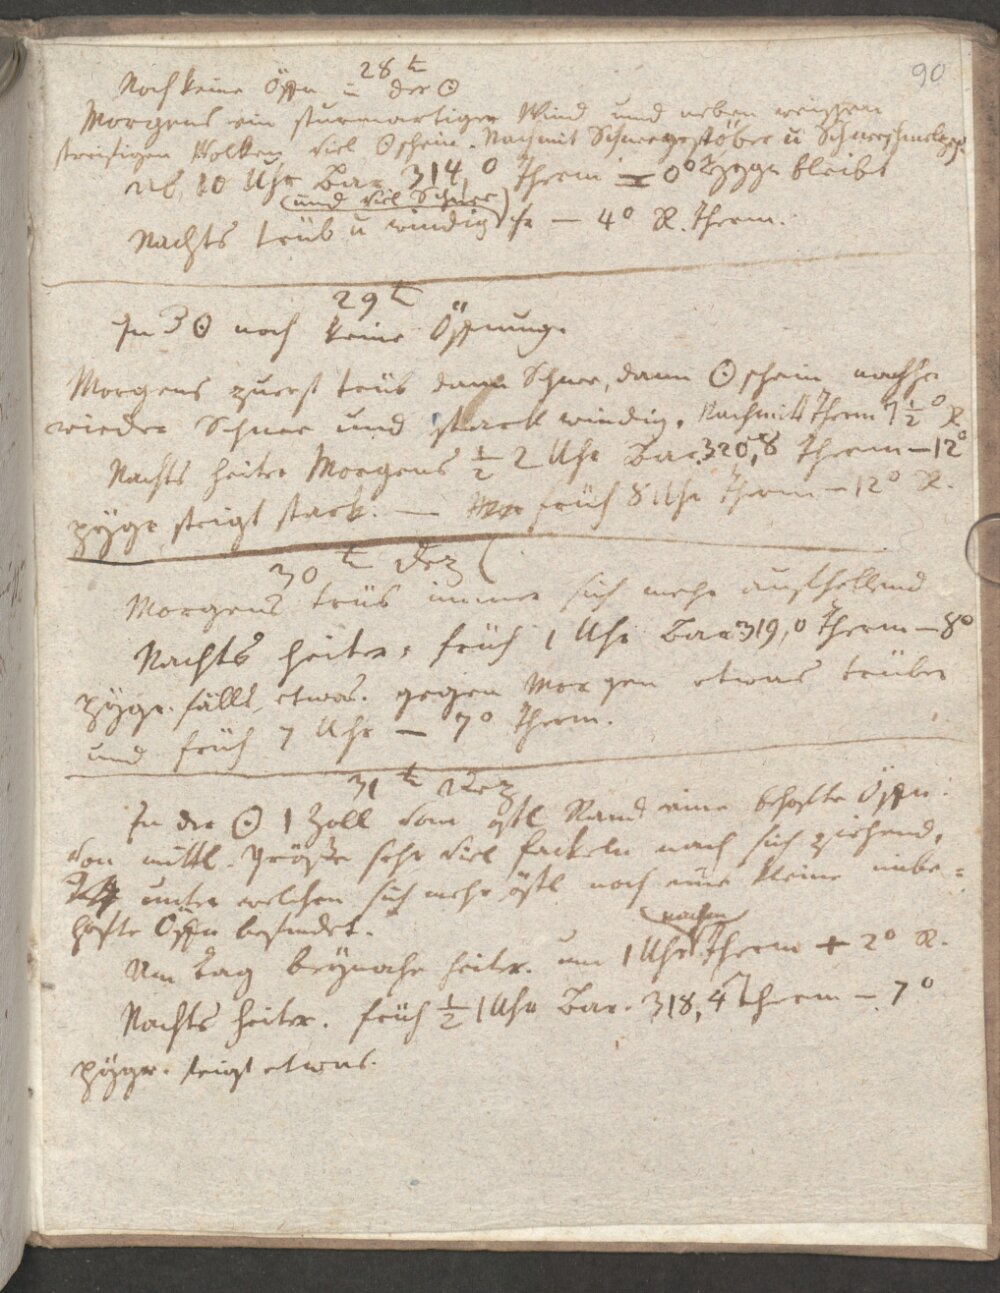 90
28t
Noch keine Öffn in der ☉
Morgens ein sturmartiger Wind und neben weissen
streifigen Wolken viel ☉schein. Nachmit Schneegestöber u
Ab. 10 Uhr Bar 314,0 Therm = 0° Hygr bleibt
(und viel Schnee)
Nachts trüb u windig fr — 4° R. Therm.
29t
In ☉ noch keine Öffnung.
Morgens zuerst trüb dann Schnee, dann ☉schein nachher
wieder Schnee und stark windig. Nachmitt Therm 7½° R
Nachts heiter Morgens ½ 2 Uhr Bar. 320,8 Therm — 12°
Hygr steigt stark. — früh 8 Uhr Therm — 12° R.
30t Dez (
Morgens trüb immer sich mehr aufhellend
Nachts heiter, früh 1 Uhr Bar 319,0 Therm — 8°
Hygr. fällt etwas. gegen Morgen etwas trüber
und früh 7 Uhr — 7° Therm.
31t Dez
In der ☉ 1 Zoll vom östl Rand eine behofte Öffn.
von mittl. Größe sehr viel fackeln nach sich ziehend,
unter welchen sich mehr östl noch eine kleine unbe=
hofte Öffn befindet.
Am Tag beynahe heiter. um 1 Uhr Therm + 2° R.
Nachts heiter. früh ½ 1 Uhr Bar. 318,4 Therm — 7°
Hygr. steigt etwas.